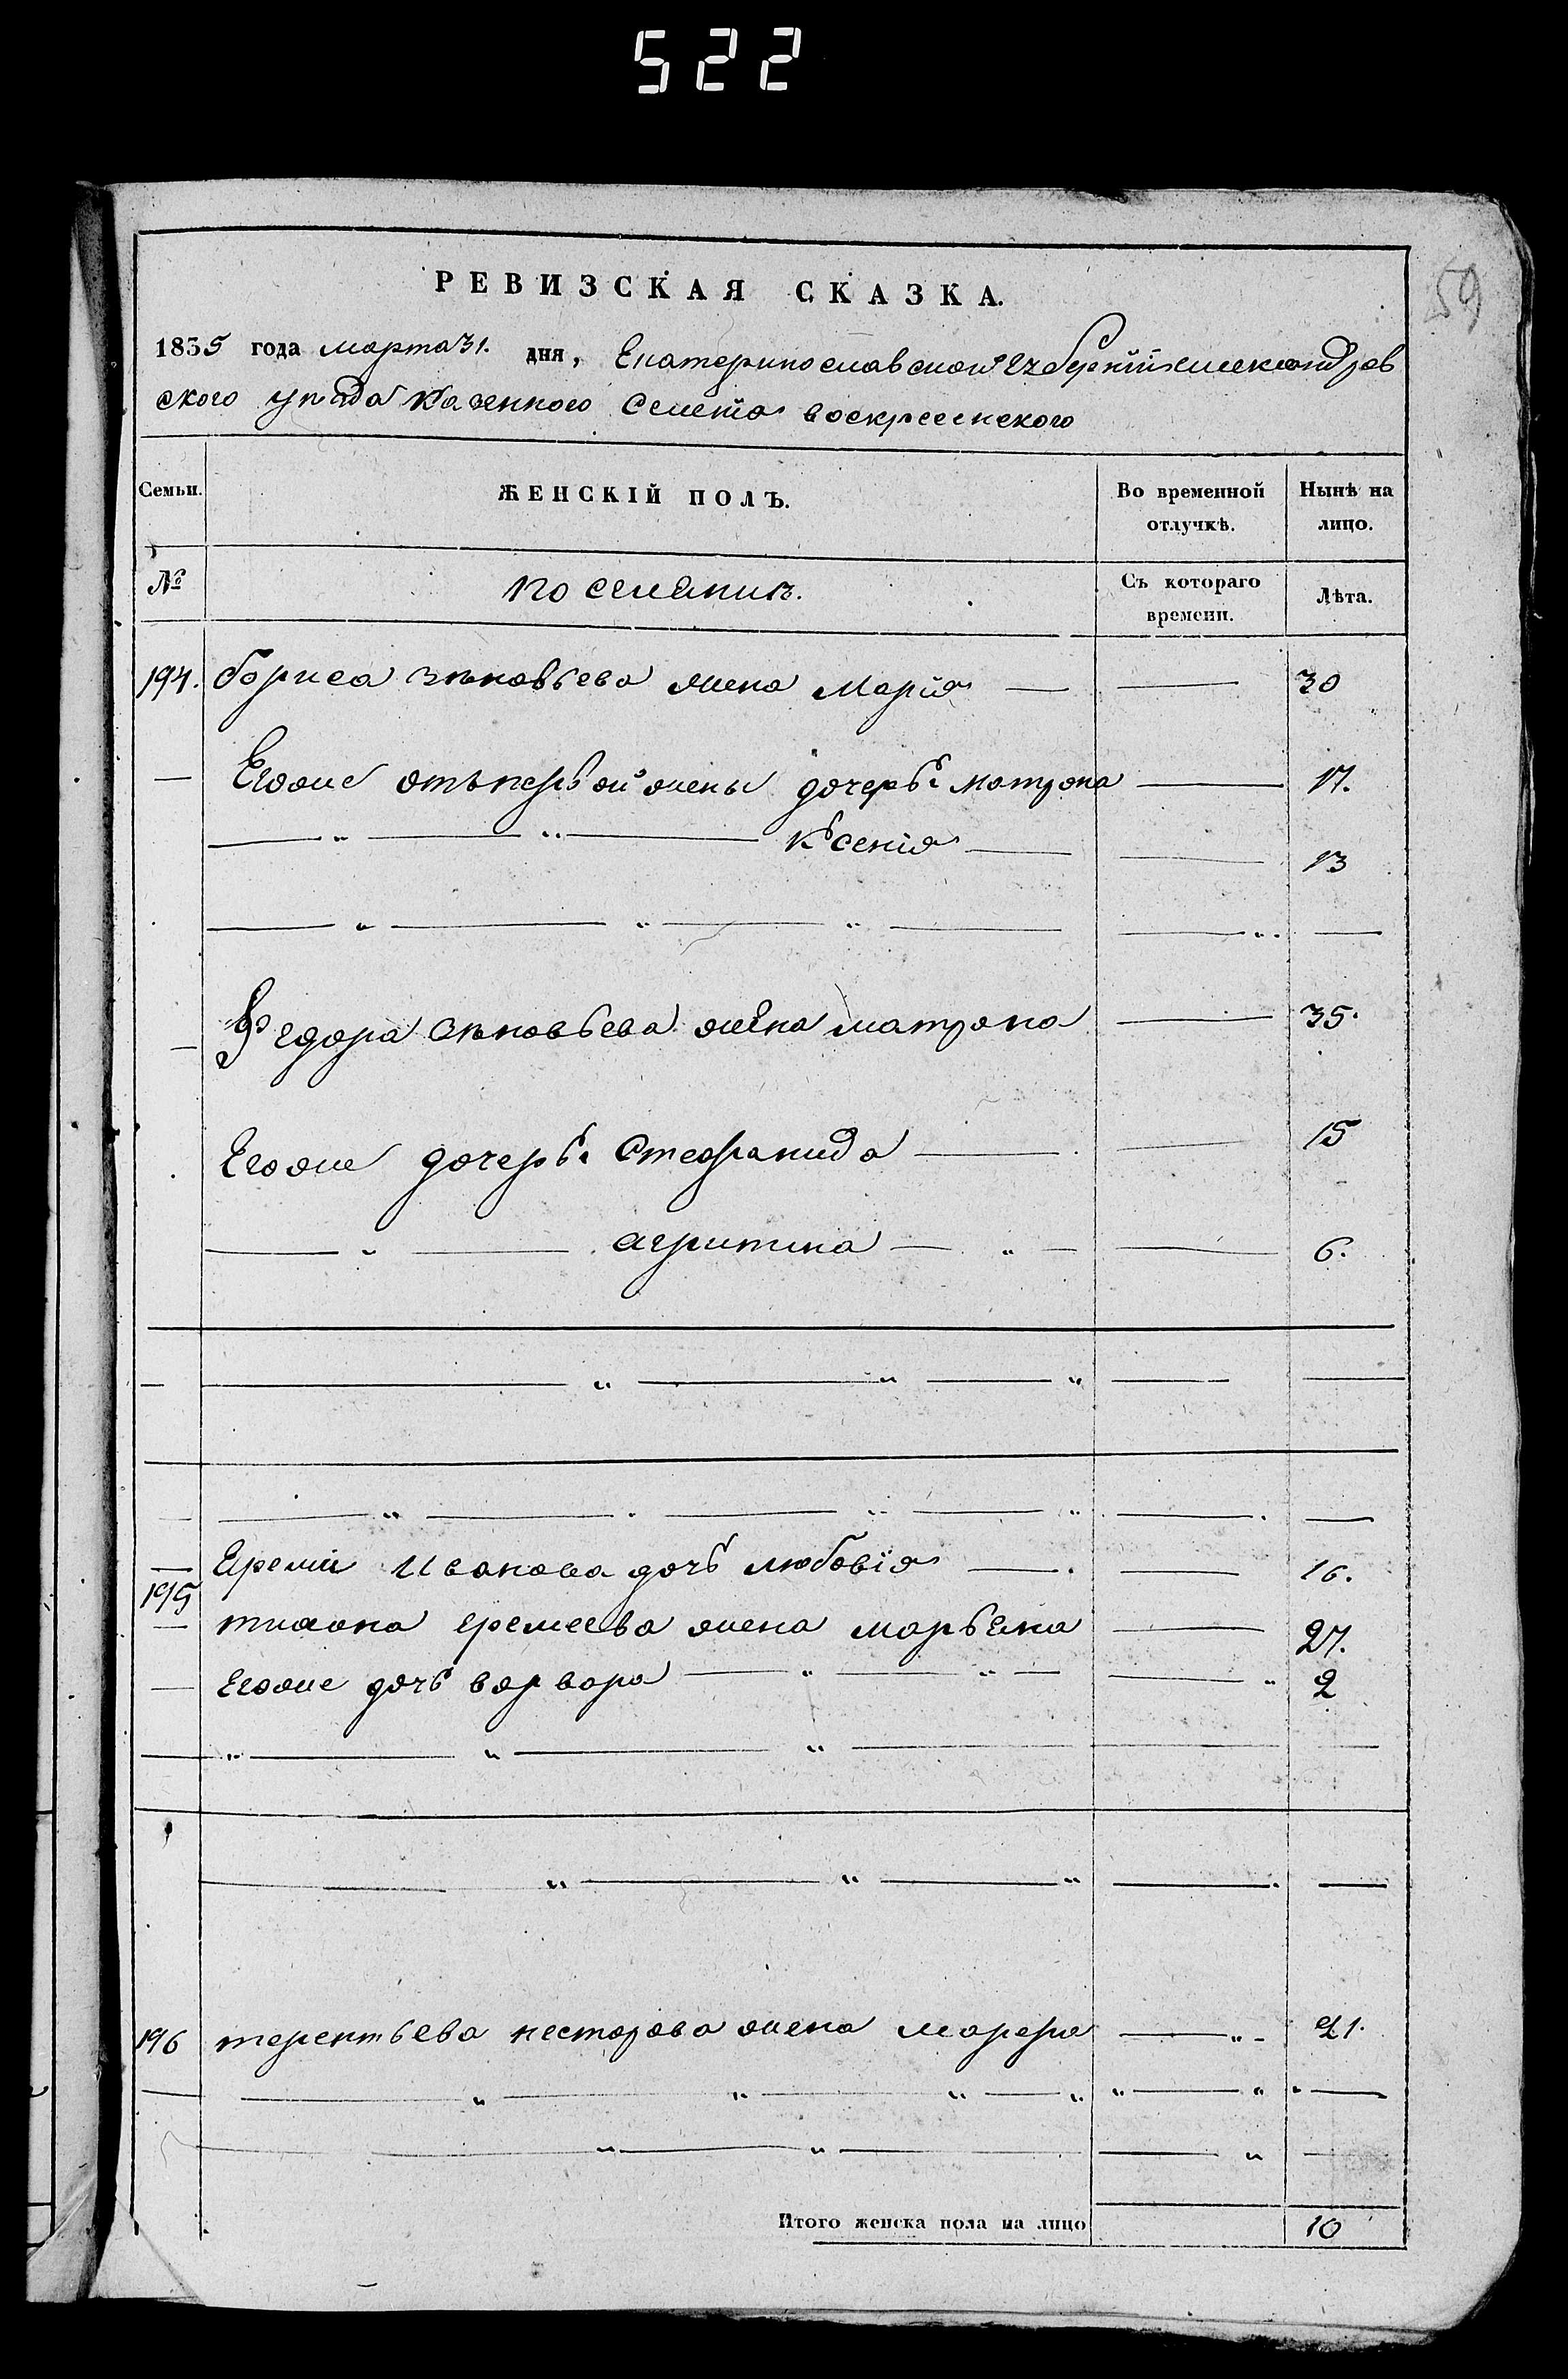 522
59
РЕВИЗСКАЯ СКАЗКА.
1835 года марта 31. дня, Екатеринославской губернїи александров
ского уѣзда казенного селенїя воскресенского
Семьи. ЖЕНСКІЙ ПОЛЪ. Во временной отлучкѣ. Нынѣ на лицо.
№ поселянинъ. Съ котораго времени. Лѣта.
194. бориса зѣновьева жена марїя — — 30
— Егоже отъ первой жены дочерьи матрона — 17.
— „ — „ — Ксенїя — — 13
— Федора зѣновьева жена матрона — 35.
Егоже дочерьи Стефанида — — 15
— „ — агрипина — „ — — 6.
— Еремїи Иванова дочь любовїя — — 16.
195 тихона еремеева жена марьена — 27.
— Егоже дочь варвара — „ — „ — — „ 2
196 терентьева нестерова жена марефа — „ - 21.
Итого женска пола на лицо 10